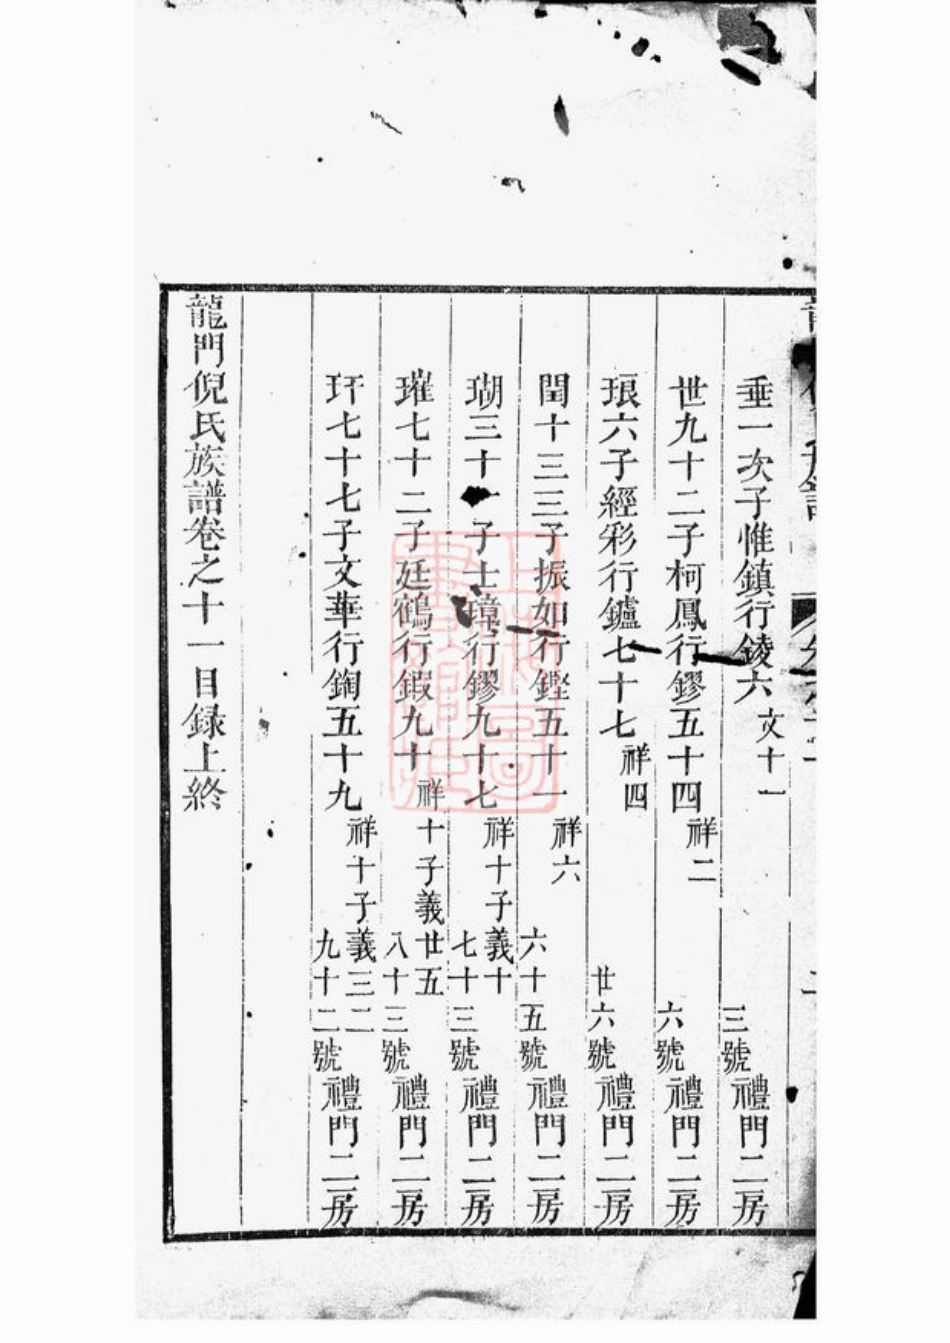 垂一次子惟鎮行錂六 文十一 三號 禮門二房
世九十二子柯鳳行鏐五十四 祥二 六號 禮門二房
琅六子經彩行鑪七十七 祥四 廿六號 禮門二房
閏十三三子振如行鏗五十一 祥六 六十五號 禮門二房
瑚三十一子士璋行鏐九十七 祥十子義十 七十三號 禮門二房
璀七十二子廷鶴行鍜九十 祥十子義廿五 八十三號 禮門二房
玕七十七子文華行鋾五十九 祥十子義三二 九十二號 禮門二房
龍門倪氏族譜卷之十一目録上終